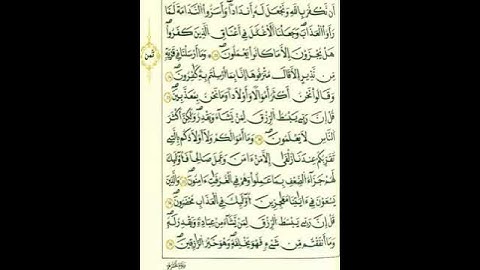 أَن نَّكْفُرَ بِاللَّهِ وَنَجْعَلَ لَهُ أَندَادًا وَأَسَرُّوا النَّدَامَةَ لَمَّا
رَأَوُا الْعَذَابَ وَجَعَلْنَا الْأَغْلَٰلَ فِي أَعْنَاقِ الَّذِينَ كَفَرُوا
هَلْ يُجْزَوْنَ إِلَّا مَا كَانُوا يَعْمَلُونَ وَمَا أَرْسَلْنَا فِي قَرْيَةٍ
مِّن نَّذِيرٍ إِلَّا قَالَ مُتْرَفُوهَا إِنَّا بِمَا أُرْسِلْتُم بِهِ كَٰفِرُونَ
وَقَالُوا نَحْنُ أَكْثَرُ أَمْوَالًا وَأَوْلَادًا وَمَا نَحْنُ بِمُعَذَّبِينَ
قُلْ إِنَّ رَبِّي يَبْسُطُ الرِّزْقَ لِمَن يَشَاءُ وَيَقْدِرُ وَلَٰكِنَّ أَكْثَرَ
النَّاسِ لَا يَعْلَمُونَ وَمَا أَمْوَالُكُمْ وَلَا أَوْلَادُكُم بِالَّتِي
تُقَرِّبُكُمْ عِندَنَا زُلْفَىٰ إِلَّا مَنْ ءَامَنَ وَعَمِلَ صَالِحًا فَأُولَٰئِكَ
لَهُمْ جَزَاءُ الضِّعْفِ بِمَا عَمِلُوا وَهُمْ فِي الْغُرُفَٰتِ ءَامِنُونَ وَالَّذِينَ
يَسْعَوْنَ فِي ءَايَٰتِنَا مُعَٰجِزِينَ أُولَٰئِكَ فِي الْعَذَابِ مُحْضَرُونَ
قُلْ إِنَّ رَبِّي يَبْسُطُ الرِّزْقَ لِمَن يَشَاءُ مِنْ عِبَادِهِ وَيَقْدِرُ لَهُ
وَمَا أَنفَقْتُم مِّن شَيْءٍ فَهُوَ يُخْلِفُهُ وَهُوَ خَيْرُ الرَّٰزِقِينَ
ثمن